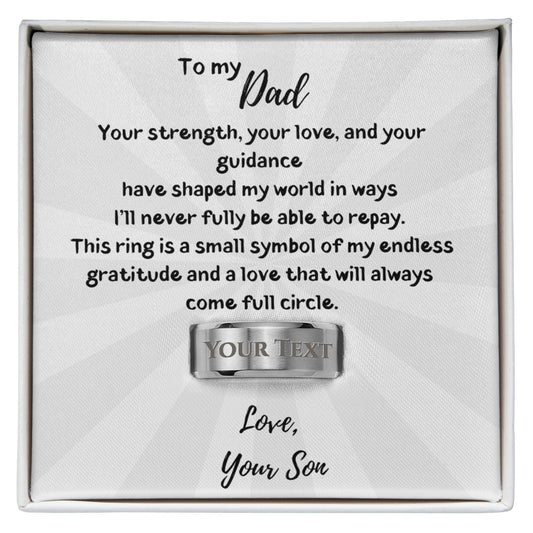 To my
Dad
Your strength, your love, and your
guidance
have shaped my world in ways
I'll never fully be able to repay.
This ring is a small symbol of my endless
gratitude and a love that will always
come full circle.
YOUR TEXT
Love,
Your Son